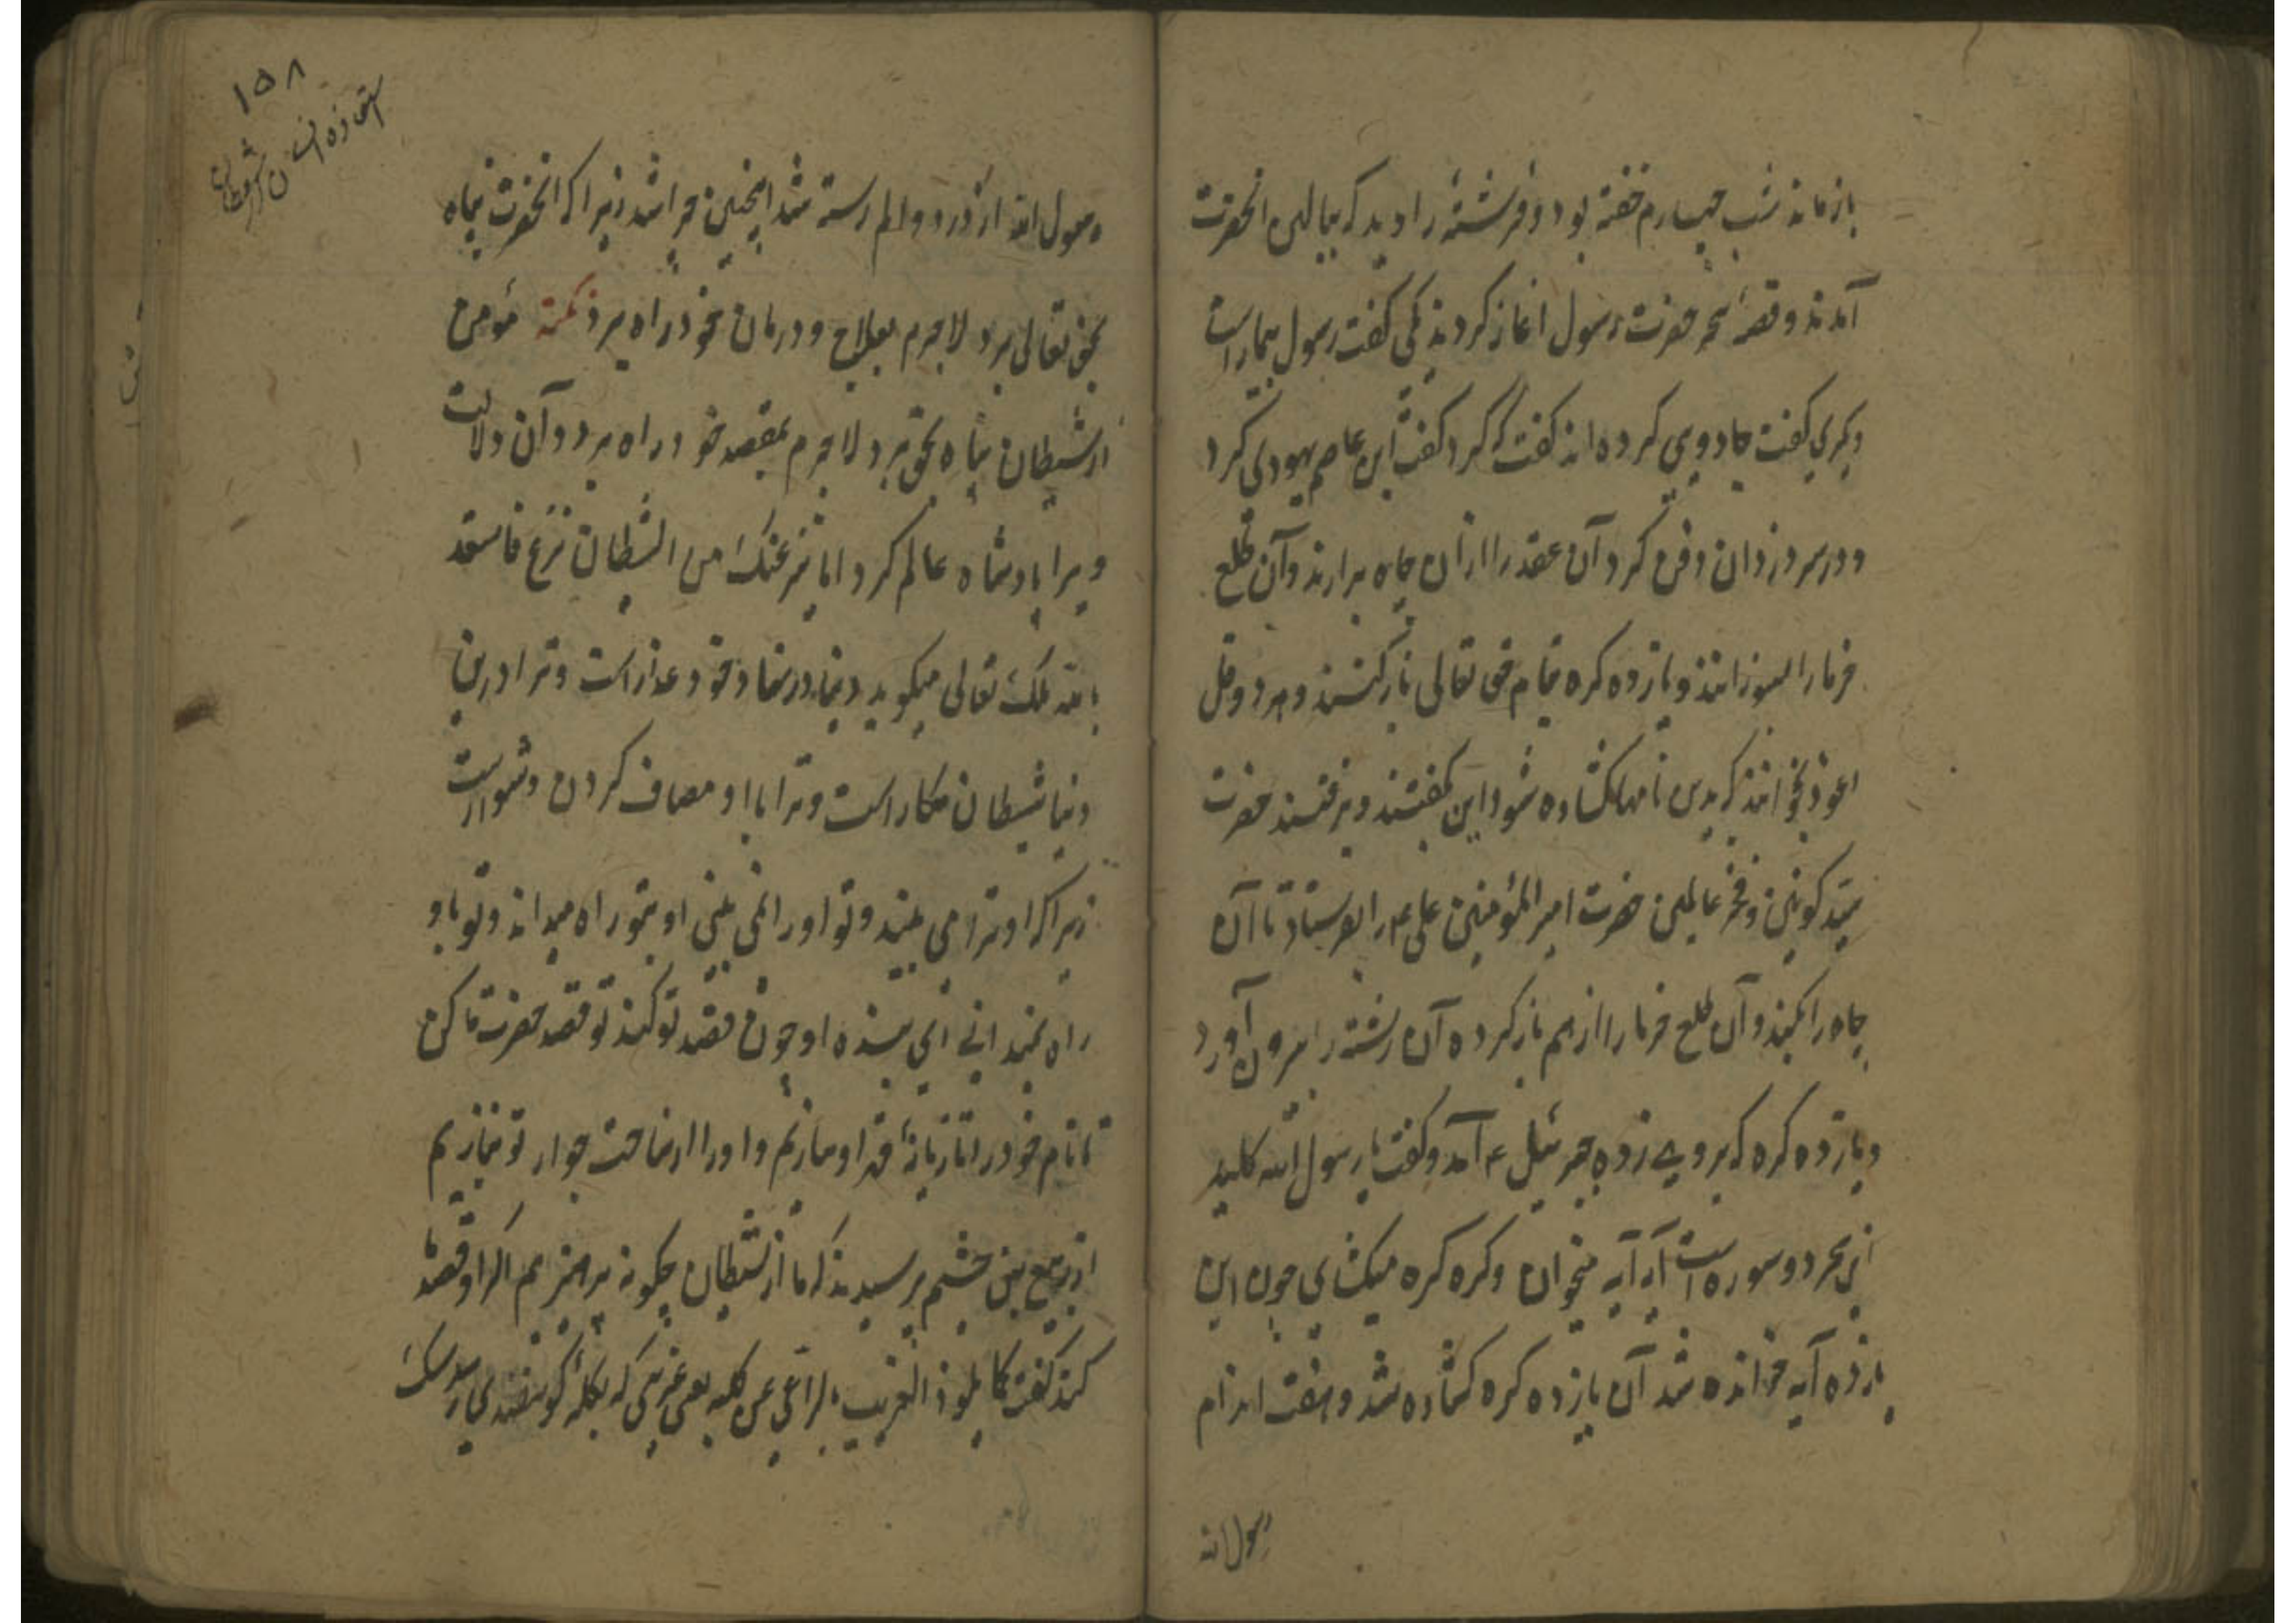 بازماند شب چهارم خفته بود دو فرشته را دید که ببالین انحضرت
آمدند و قصهٔ سحر حضرت رسول اغاز کردند یکی گفت رسول بیمار است
دیگری گفت جادویی کرده اند گفت که کرد گفت ابن عاصم یهودی کرد
و در سر دزدان دفن کرد آن عقد را از آن چاه برارند و آن طلع
خرما را بسوزانند و یازده گره بنام حق تعالی باز کنند و هر دو قل
اعوذ بخوانند که بدین نامها گشاده شود این بگفتند و برفتند حضرت
سید کونین و فخر عالمین حضرت امیر المؤمنین علی ع را بفرستاد تا آن
چاه را بکند و آن طلع خرما را از هم باز کرده آن رشته را بیرون آورد
و یازده گره که بر وی زده جبرئیل ع آمد و گفت یا رسول الله کلید
این سحر دو سوره است آیه آیه میخوان و گره گره میگشای چون این
یازده آیه خوانده شد آن یازده گره گشاده شد و هفت اندام
رسول الله
۱۵۸
استعاذه انسان از شیطان
رسول الله از درد و الم رسته شد اینچنین چرا شد زیرا که انحضرت پناه
بحق تعالی برد لاجرم بعلاج و درمان خود راه برد نکته مؤمن
از شیطان پناه بحق برد لاجرم بمقصد خود راه برد و آن دلالت
ویرا پادشاه عالم کرد اما ینزغنک من الشیطان نزغ فاستعذ
بالله ملک تعالی میگوید دنیا در نهاد خود غدار است و ترا درین
دنیا شیطان مکار است و ترا با او مصاف کردن دشوار است
زیرا که او ترا می بیند و تو او را نمی بینی او بتو راه میداند و تو باو
راه نمیدانی ای بنده او چون قصد تو کند تو قصد حضرت ما کن
تا نام خود را تازیانهٔ قهر او سازیم و او را از ساحت جوار تو بتازیم
از ربیع بن خثیم پرسیدند که ما از شیطان چگونه بپرهیزیم اگر او قصد ما
کند گفت کما یلوذ الغریب بالراعی عن کلبه یعنی غریبی که بگلهٔ گوسفندی رسد سگ